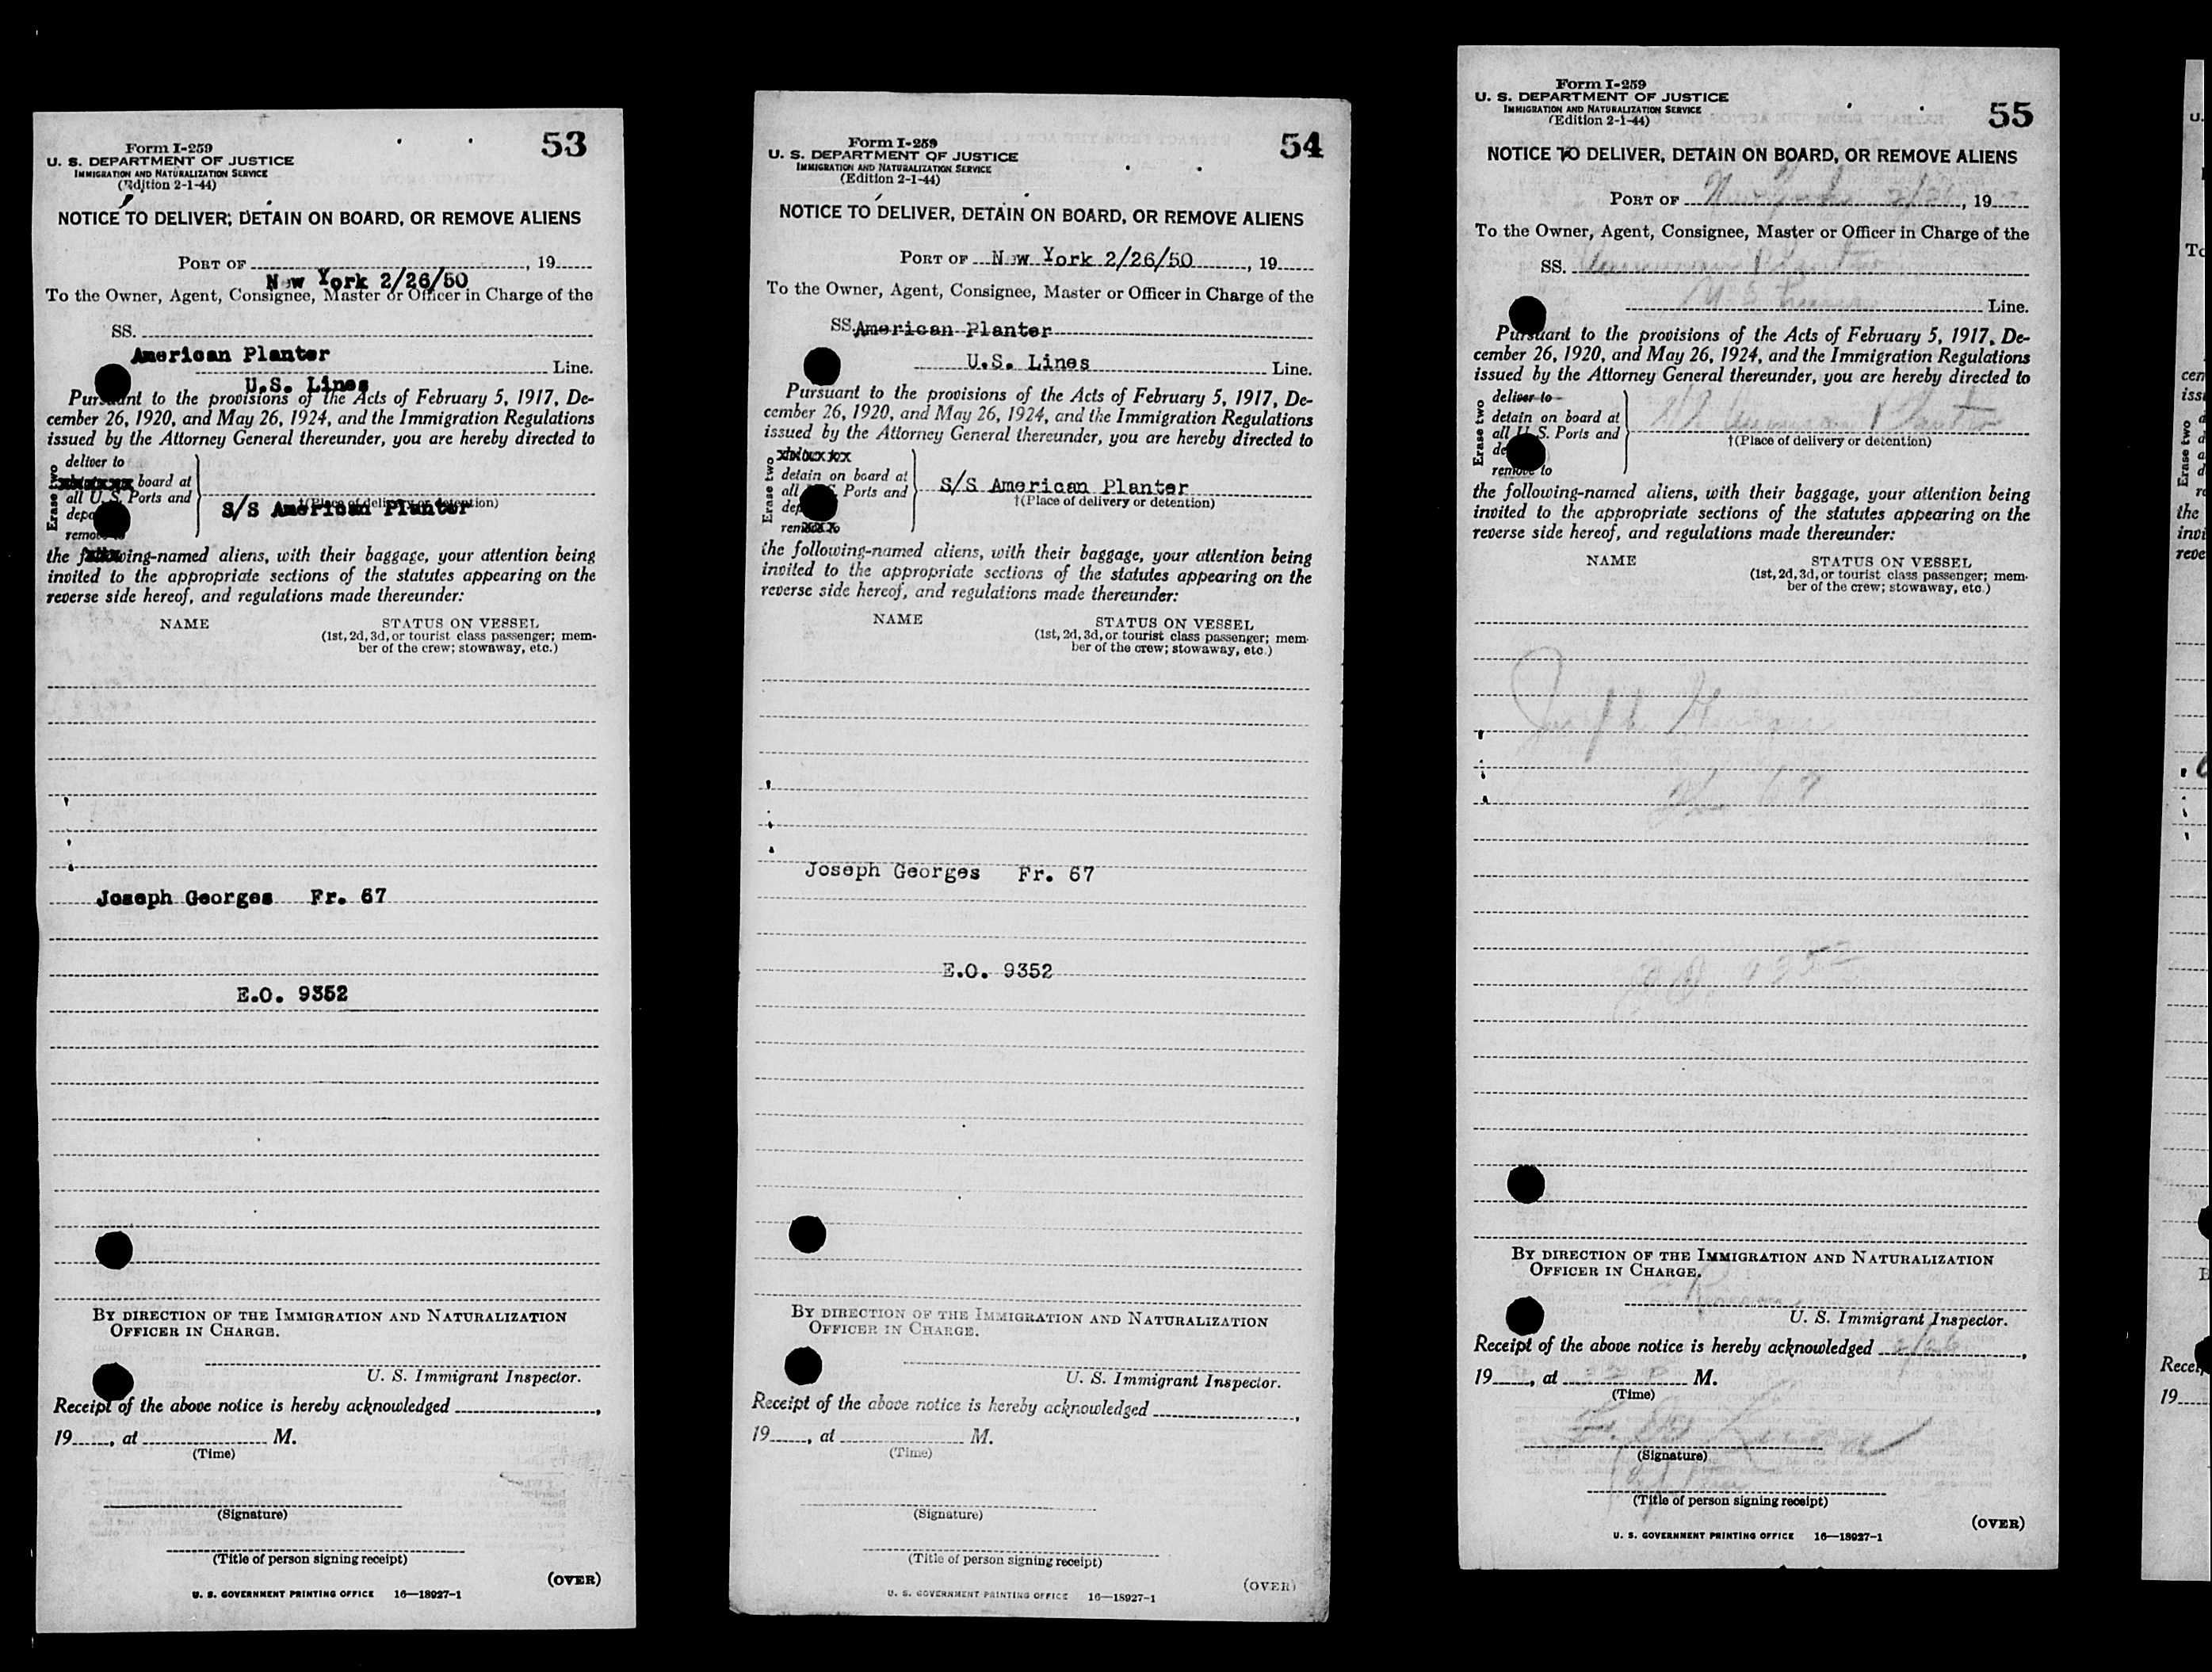 53
Form I-259
U. S. DEPARTMENT OF JUSTICE
IMMIGRATION AND NATURALIZATION SERVICE
(Edition 2-1-44)
NOTICE TO DELIVER, DETAIN ON BOARD, OR REMOVE ALIENS
PORT OF New York 2/26/50, 19
To the Owner, Agent, Consignee, Master or Officer in Charge of the
SS. American Planter
U.S. Lines Line.
Pursuant to the provisions of the Acts of February 5, 1917, De-
cember 26, 1920, and May 26, 1924, and the Immigration Regulations
issued by the Attorney General thereunder, you are hereby directed to
Erase two
deliver to
board at
all U.S. Ports and
remove to
S/S American Planter
†(Place of delivery or detention)
the following-named aliens, with their baggage, your attention being
invited to the appropriate sections of the statutes appearing on the
reverse side hereof, and regulations made thereunder:
NAME STATUS ON VESSEL
(1st, 2d, 3d, or tourist class passenger; mem-
ber of the crew; stowaway, etc.)
Joseph Georges Fr. 67
E.O. 9352
BY DIRECTION OF THE IMMIGRATION AND NATURALIZATION
OFFICER IN CHARGE.
U. S. Immigrant Inspector.
Receipt of the above notice is hereby acknowledged ,
19 , at M.
(Time)
(Signature)
(Title of person signing receipt)
(OVER)
U. S. GOVERNMENT PRINTING OFFICE 16—18927-1
54
Form I-259
U. S. DEPARTMENT OF JUSTICE
IMMIGRATION AND NATURALIZATION SERVICE
(Edition 2-1-44)
NOTICE TO DELIVER, DETAIN ON BOARD, OR REMOVE ALIENS
PORT OF New York 2/26/50, 19
To the Owner, Agent, Consignee, Master or Officer in Charge of the
SS. American Planter
U.S. Lines Line.
Pursuant to the provisions of the Acts of February 5, 1917, De-
cember 26, 1920, and May 26, 1924, and the Immigration Regulations
issued by the Attorney General thereunder, you are hereby directed to
Erase two
detain on board at
all Ports and
S/S American Planter
†(Place of delivery or detention)
the following-named aliens, with their baggage, your attention being
invited to the appropriate sections of the statutes appearing on the
reverse side hereof, and regulations made thereunder:
NAME STATUS ON VESSEL
(1st, 2d, 3d, or tourist class passenger; mem-
ber of the crew; stowaway, etc.)
Joseph Georges Fr. 67
E.O. 9352
BY DIRECTION OF THE IMMIGRATION AND NATURALIZATION
OFFICER IN CHARGE.
U. S. Immigrant Inspector.
Receipt of the above notice is hereby acknowledged ,
19 , at M.
(Time)
(Signature)
(Title of person signing receipt)
(OVER)
U. S. GOVERNMENT PRINTING OFFICE 16—18927-1
55
Form I-259
U. S. DEPARTMENT OF JUSTICE
IMMIGRATION AND NATURALIZATION SERVICE
(Edition 2-1-44)
NOTICE TO DELIVER, DETAIN ON BOARD, OR REMOVE ALIENS
PORT OF New York 2/26, 19
To the Owner, Agent, Consignee, Master or Officer in Charge of the
SS. American Planter
U S Lines Line.
Pursuant to the provisions of the Acts of February 5, 1917, De-
cember 26, 1920, and May 26, 1924, and the Immigration Regulations
issued by the Attorney General thereunder, you are hereby directed to
Erase two
deliver to
detain on board at
all U.S. Ports and
remove to
American Planter
†(Place of delivery or detention)
the following-named aliens, with their baggage, your attention being
invited to the appropriate sections of the statutes appearing on the
reverse side hereof, and regulations made thereunder:
NAME STATUS ON VESSEL
(1st, 2d, 3d, or tourist class passenger; mem-
ber of the crew; stowaway, etc.)
Joseph Georges
67
E.O. 9352
BY DIRECTION OF THE IMMIGRATION AND NATURALIZATION
OFFICER IN CHARGE.
U. S. Immigrant Inspector.
Receipt of the above notice is hereby acknowledged 2/26,
19 , at M.
(Time)
(Signature)
(Title of person signing receipt)
(OVER)
U. S. GOVERNMENT PRINTING OFFICE 16—18927-1